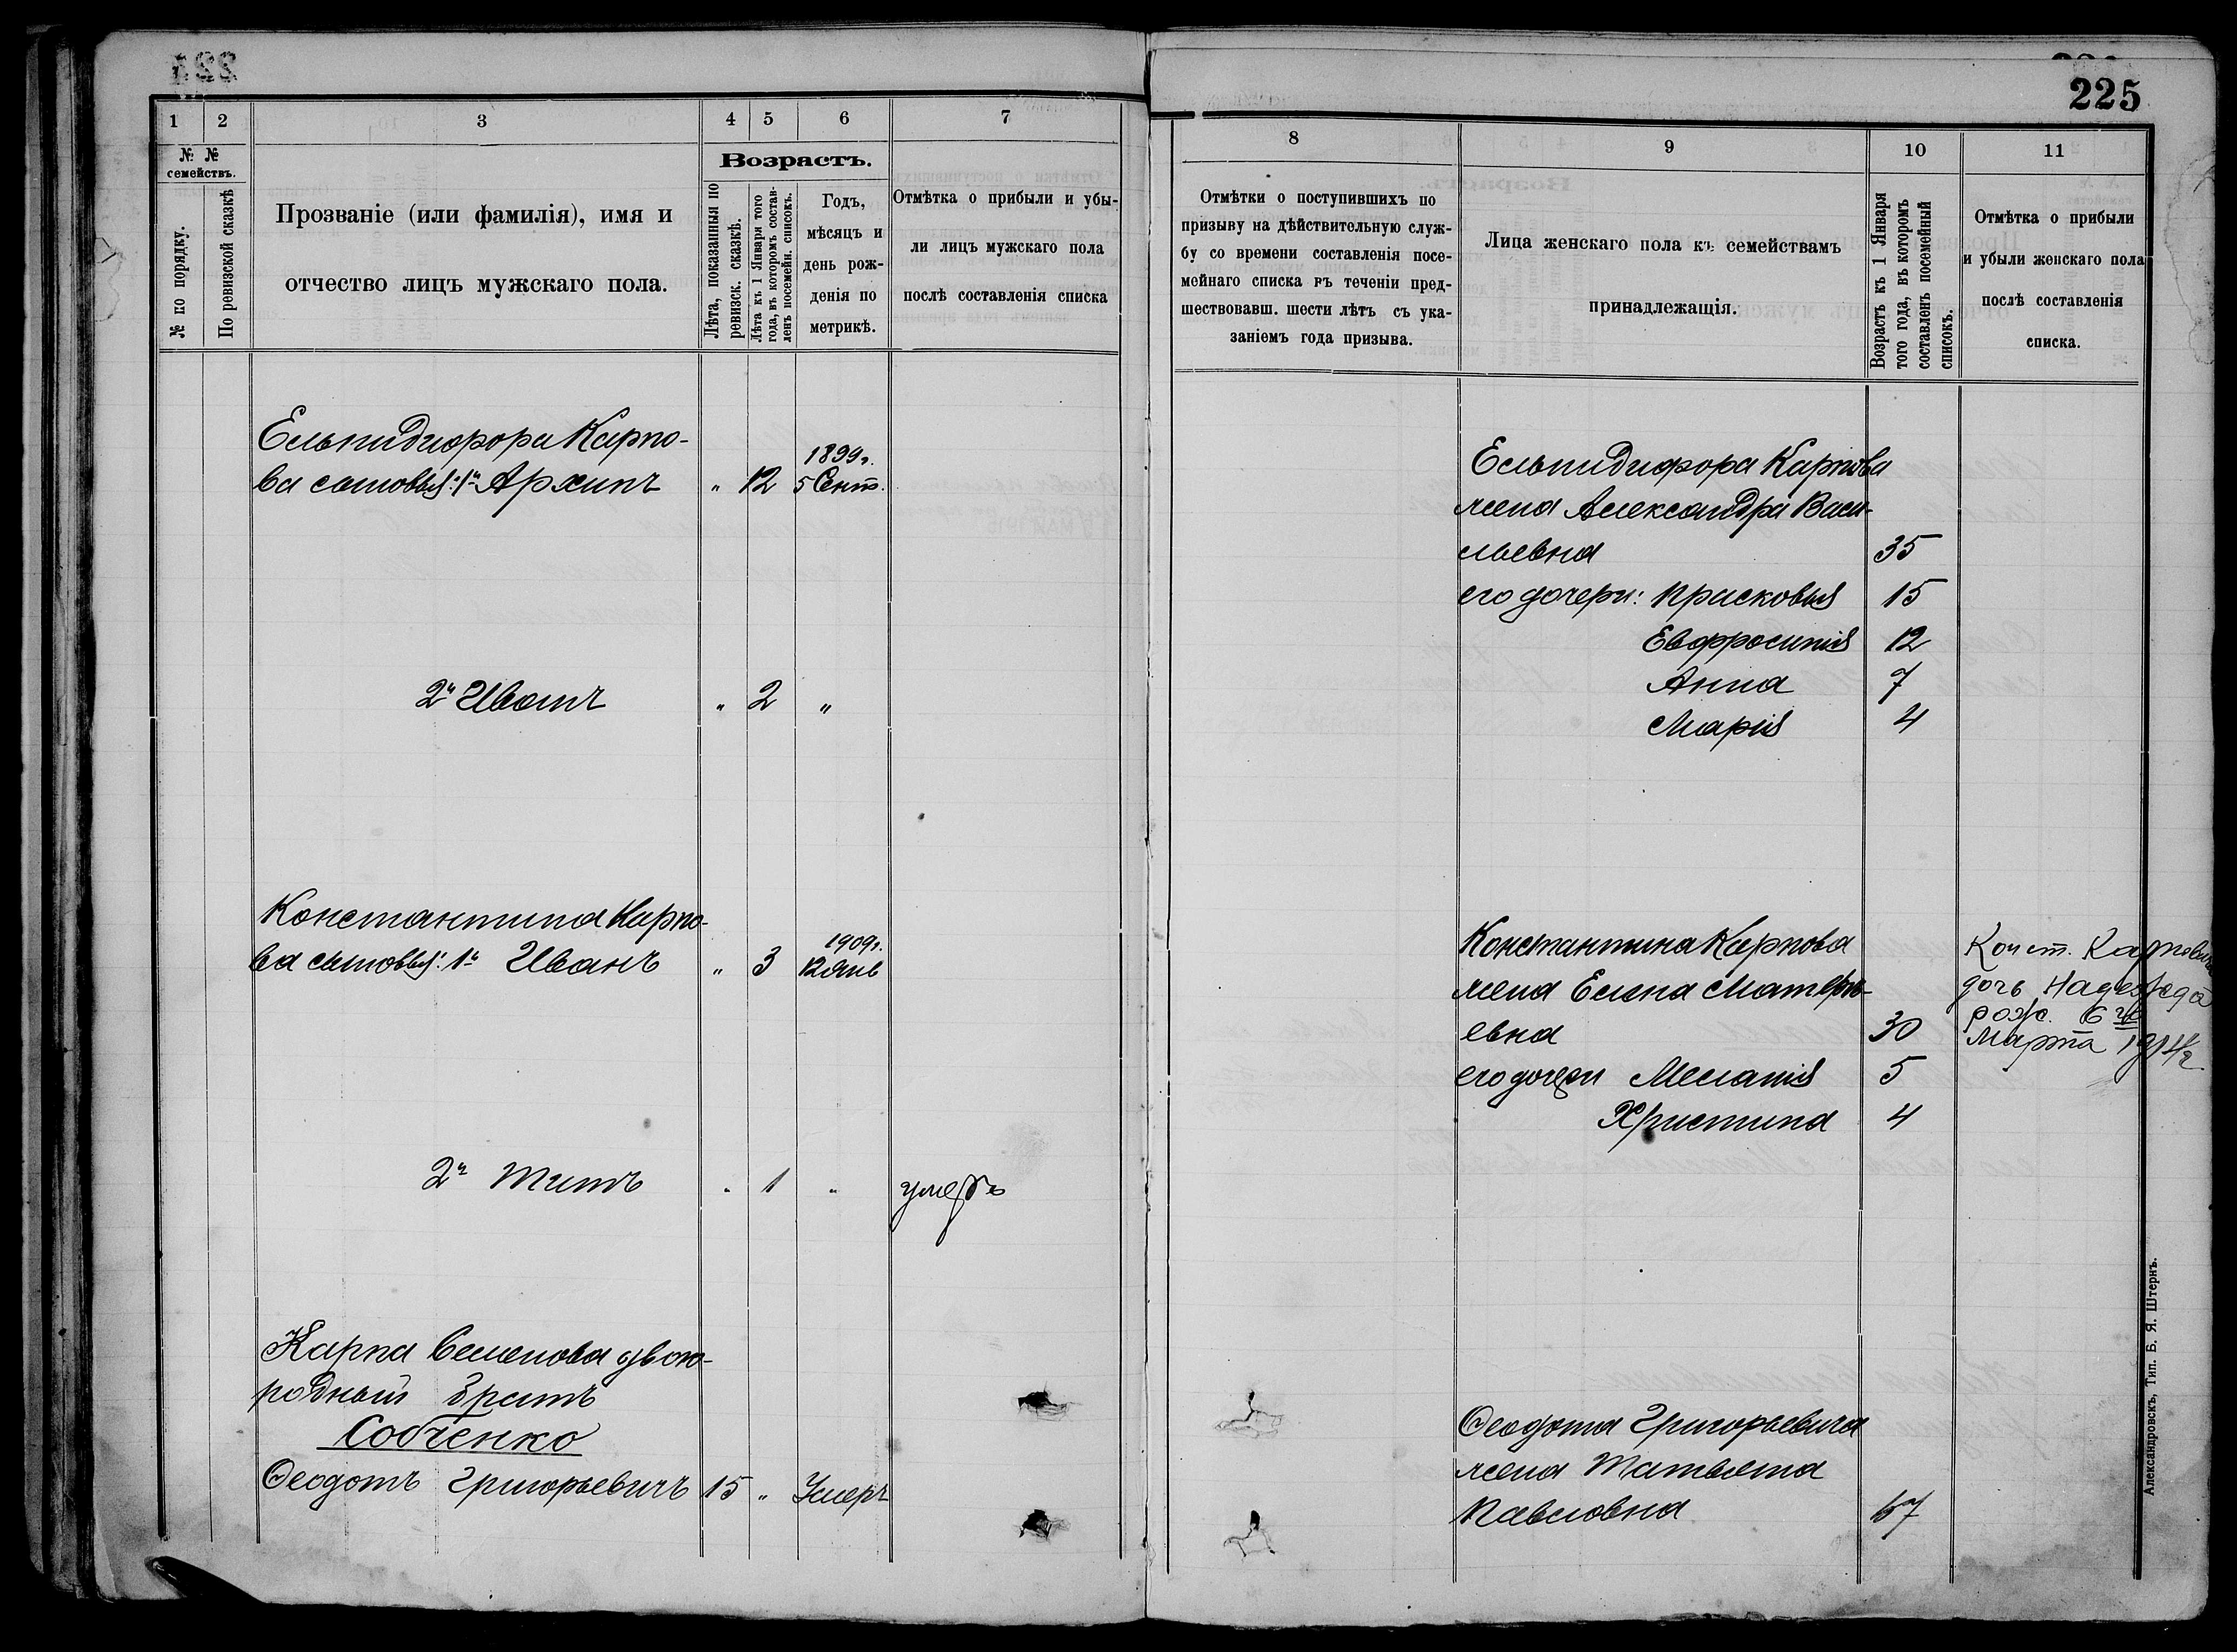 225
1 2 3 4 5 6 7
№ № семействъ.
№ по порядку.
По ревизской сказкѣ
Прозваніе (или фамилія), имя и
отчество лицъ мужскаго пола.
Возрастъ.
Лѣта, показанныя по
ревизск. сказкѣ.
Лѣта къ 1 Января того
года, въ которомъ состав-
ленъ посемейн. списокъ.
Годъ,
мѣсяцъ и
день рож-
денія по
метрикѣ.
Отмѣтка о прибыли и убы-
ли лицъ мужскаго пола
послѣ составленія списка
Ельпидифора Карпо-
ва сыновья: 1й Архипъ " 12 1899г. 5 Сент.
2й Иванъ " 2 "
Константина Карпо-
ва сыновья: 1й Иванъ " 3 1909г. 12 Янв
2й Титъ " 1 " умеръ
Карпа Семенова двою-
родный братъ
Собченко
Ѳеодотъ Григорьевичъ 15 " Умеръ
8 9 10 11
Отмѣтки о поступившихъ по
призыву на дѣйствительную служ-
бу со времени составленія посе-
мейнаго списка въ теченіи пред-
шествовавш. шести лѣтъ съ ука-
заніемъ года призыва.
Лица женскаго пола къ семействамъ
принадлежащія.
Возрастъ къ 1 Января
того года, въ которомъ
составленъ посемейный
списокъ.
Отмѣтка о прибыли
и убыли женскаго пола
послѣ составленія
списка.
Ельпидифора Карпова
жена Александра Васи-
льевна 35
его дочери: Прасковья 15
Евфросинія 12
Анна 7
Марія 4
Константина Карпова
жена Елена Матвѣ-
евна 30
его дочери Меланія 5
Христина 4
Конст. Карповича
дочь Надежда
рож. 6го
Марта 1914г
Ѳеодота Григорьевича
жена Татьяна
Павловна 67
Александровскъ, Тип. Б. Я. Штернъ.